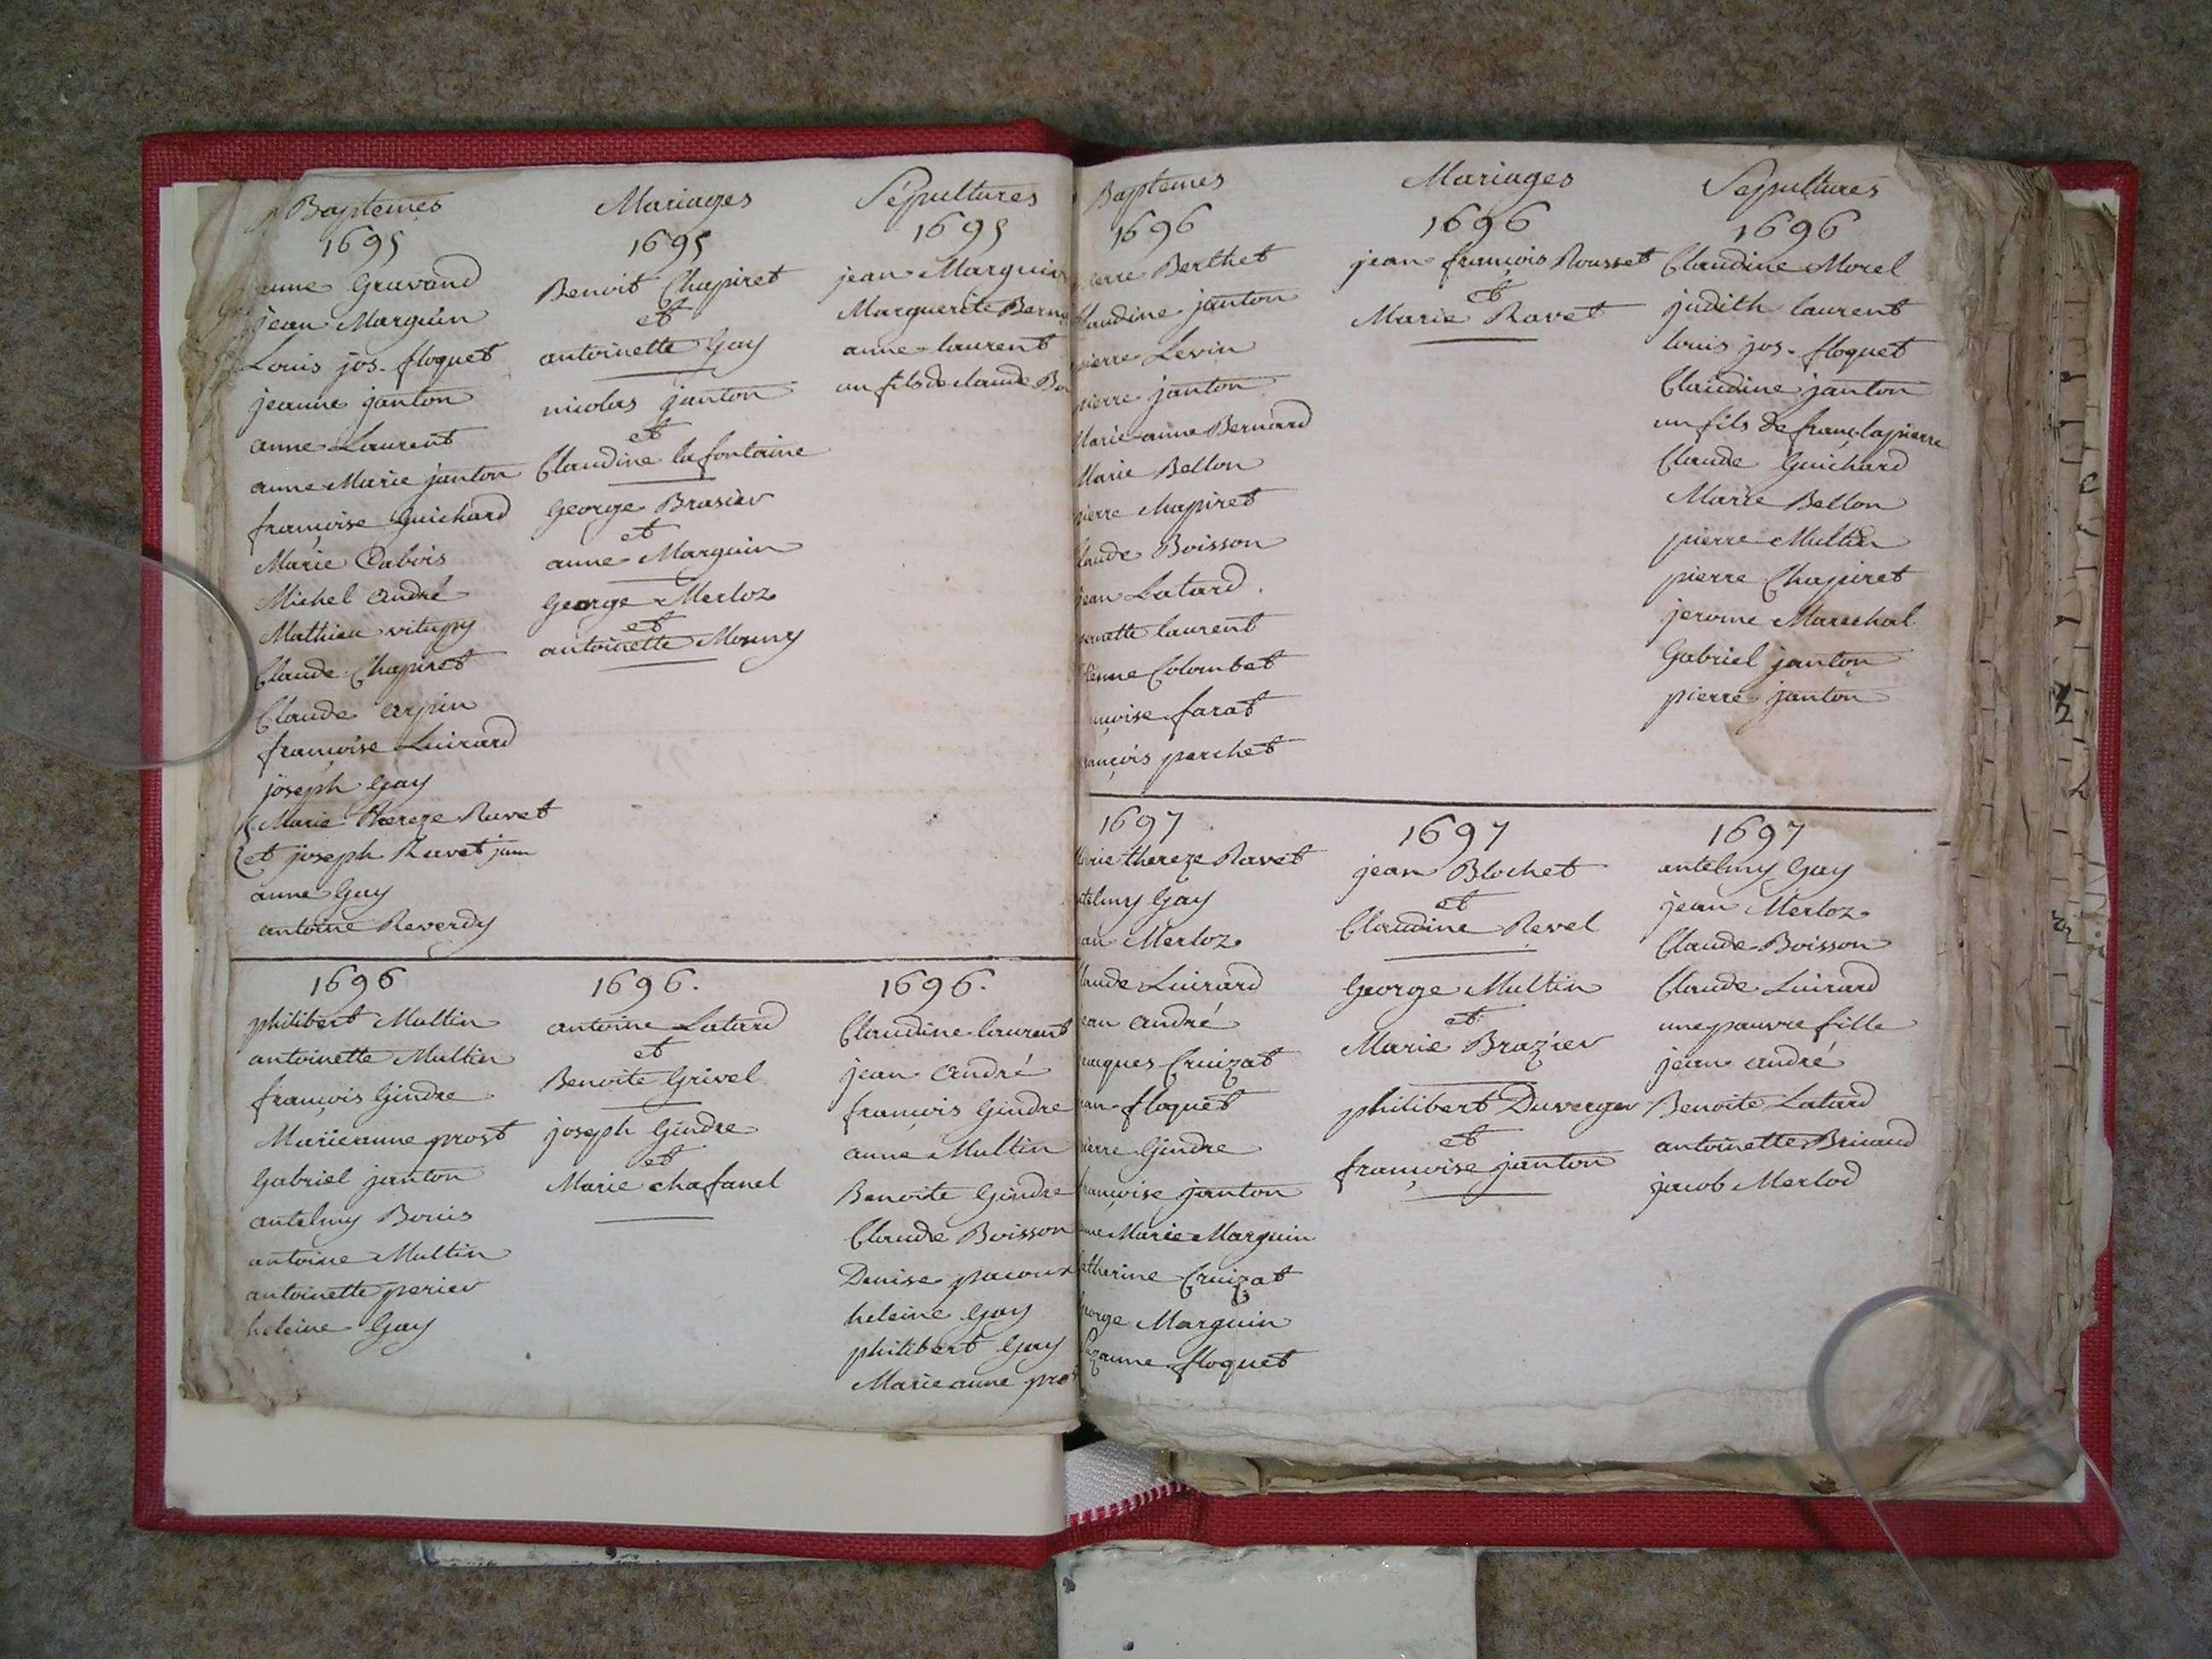 Baptemes
1695
anne Gravand
jean Marguin
Louis jos. floquet
jeanne janton
anne Laurent
anne Marie janton
françoise Guichard
Marie Dabois
Michel André
Mathieu vitupy
Claude Chapiret
Claude arpin
françoise Luirard
joseph Gay
Marie Thereze Ravet
et joseph Ravet jum
anne Gay
antoine Reverdy
Mariages
1695
Benoit Chapiret
et
antoinette Gay
nicolas janton
et
Claudine lafontaine
George Brasier
et
anne Marguin
George Merloz
et
antoinette Mouny
Sépultures
1695
jean Marguin
Marguerite
anne laurent
un fils de claude
1696
philibert Multin
antoinette Multin
françois Gindre
Marieanne prost
Gabriel janton
antelmy Bouis
antoine Multin
antoinette perier
heleine Gay
1696.
antoine Latard
et
Benoite Grivel
joseph Gindre
et
Marie chafanel
1696.
Claudine laurent
jean André
françois Gindre
anne Multin
Benoite Gindre
Claude Boisson
Denise
heleine Gay
philibert Gay
Marieanne
Baptemes
1696
ierre Berthet
laudine janton
pierre Levin
pierre janton
Marie anne Bernard
Marie Bellon
pierre chapiret
laude Boisson
jean Latard.
laurent
ienne Colombet
nçoise farat
ançois perchet
Mariages
1696
jean françois Rousset
et
Marie Ravet
Sepultures
1696
Claudine Morel
judith laurent
louis jos. floquet
Claudine janton
un fils de franç. lapierre
Claude Guichard
Marie Bellon
pierre Multin
pierre Chapiret
jerome Mareschal
Gabriel janton
pierre janton
1697
Marie thereze Ravet
ntelmy Gay
ean Merloz
laude Luirard
ean André
acques Cruizat
ean floquet
ierre Gindre
rançoise janton
nne Marie Marguin
atherine Cruizat
eorge Marguin
Suzanne floquet
1697
jean Blochet
et
Claudine Revel
George Multin
et
Marie Brazier
philibert Duverger
et
françoise janton
1697
antelmy Gay
jean Merloz
Claude Boisson
Claude Luirard
une pauvre fille
jean André
Benoite Latard
antoinette Briand
jacob Merlod